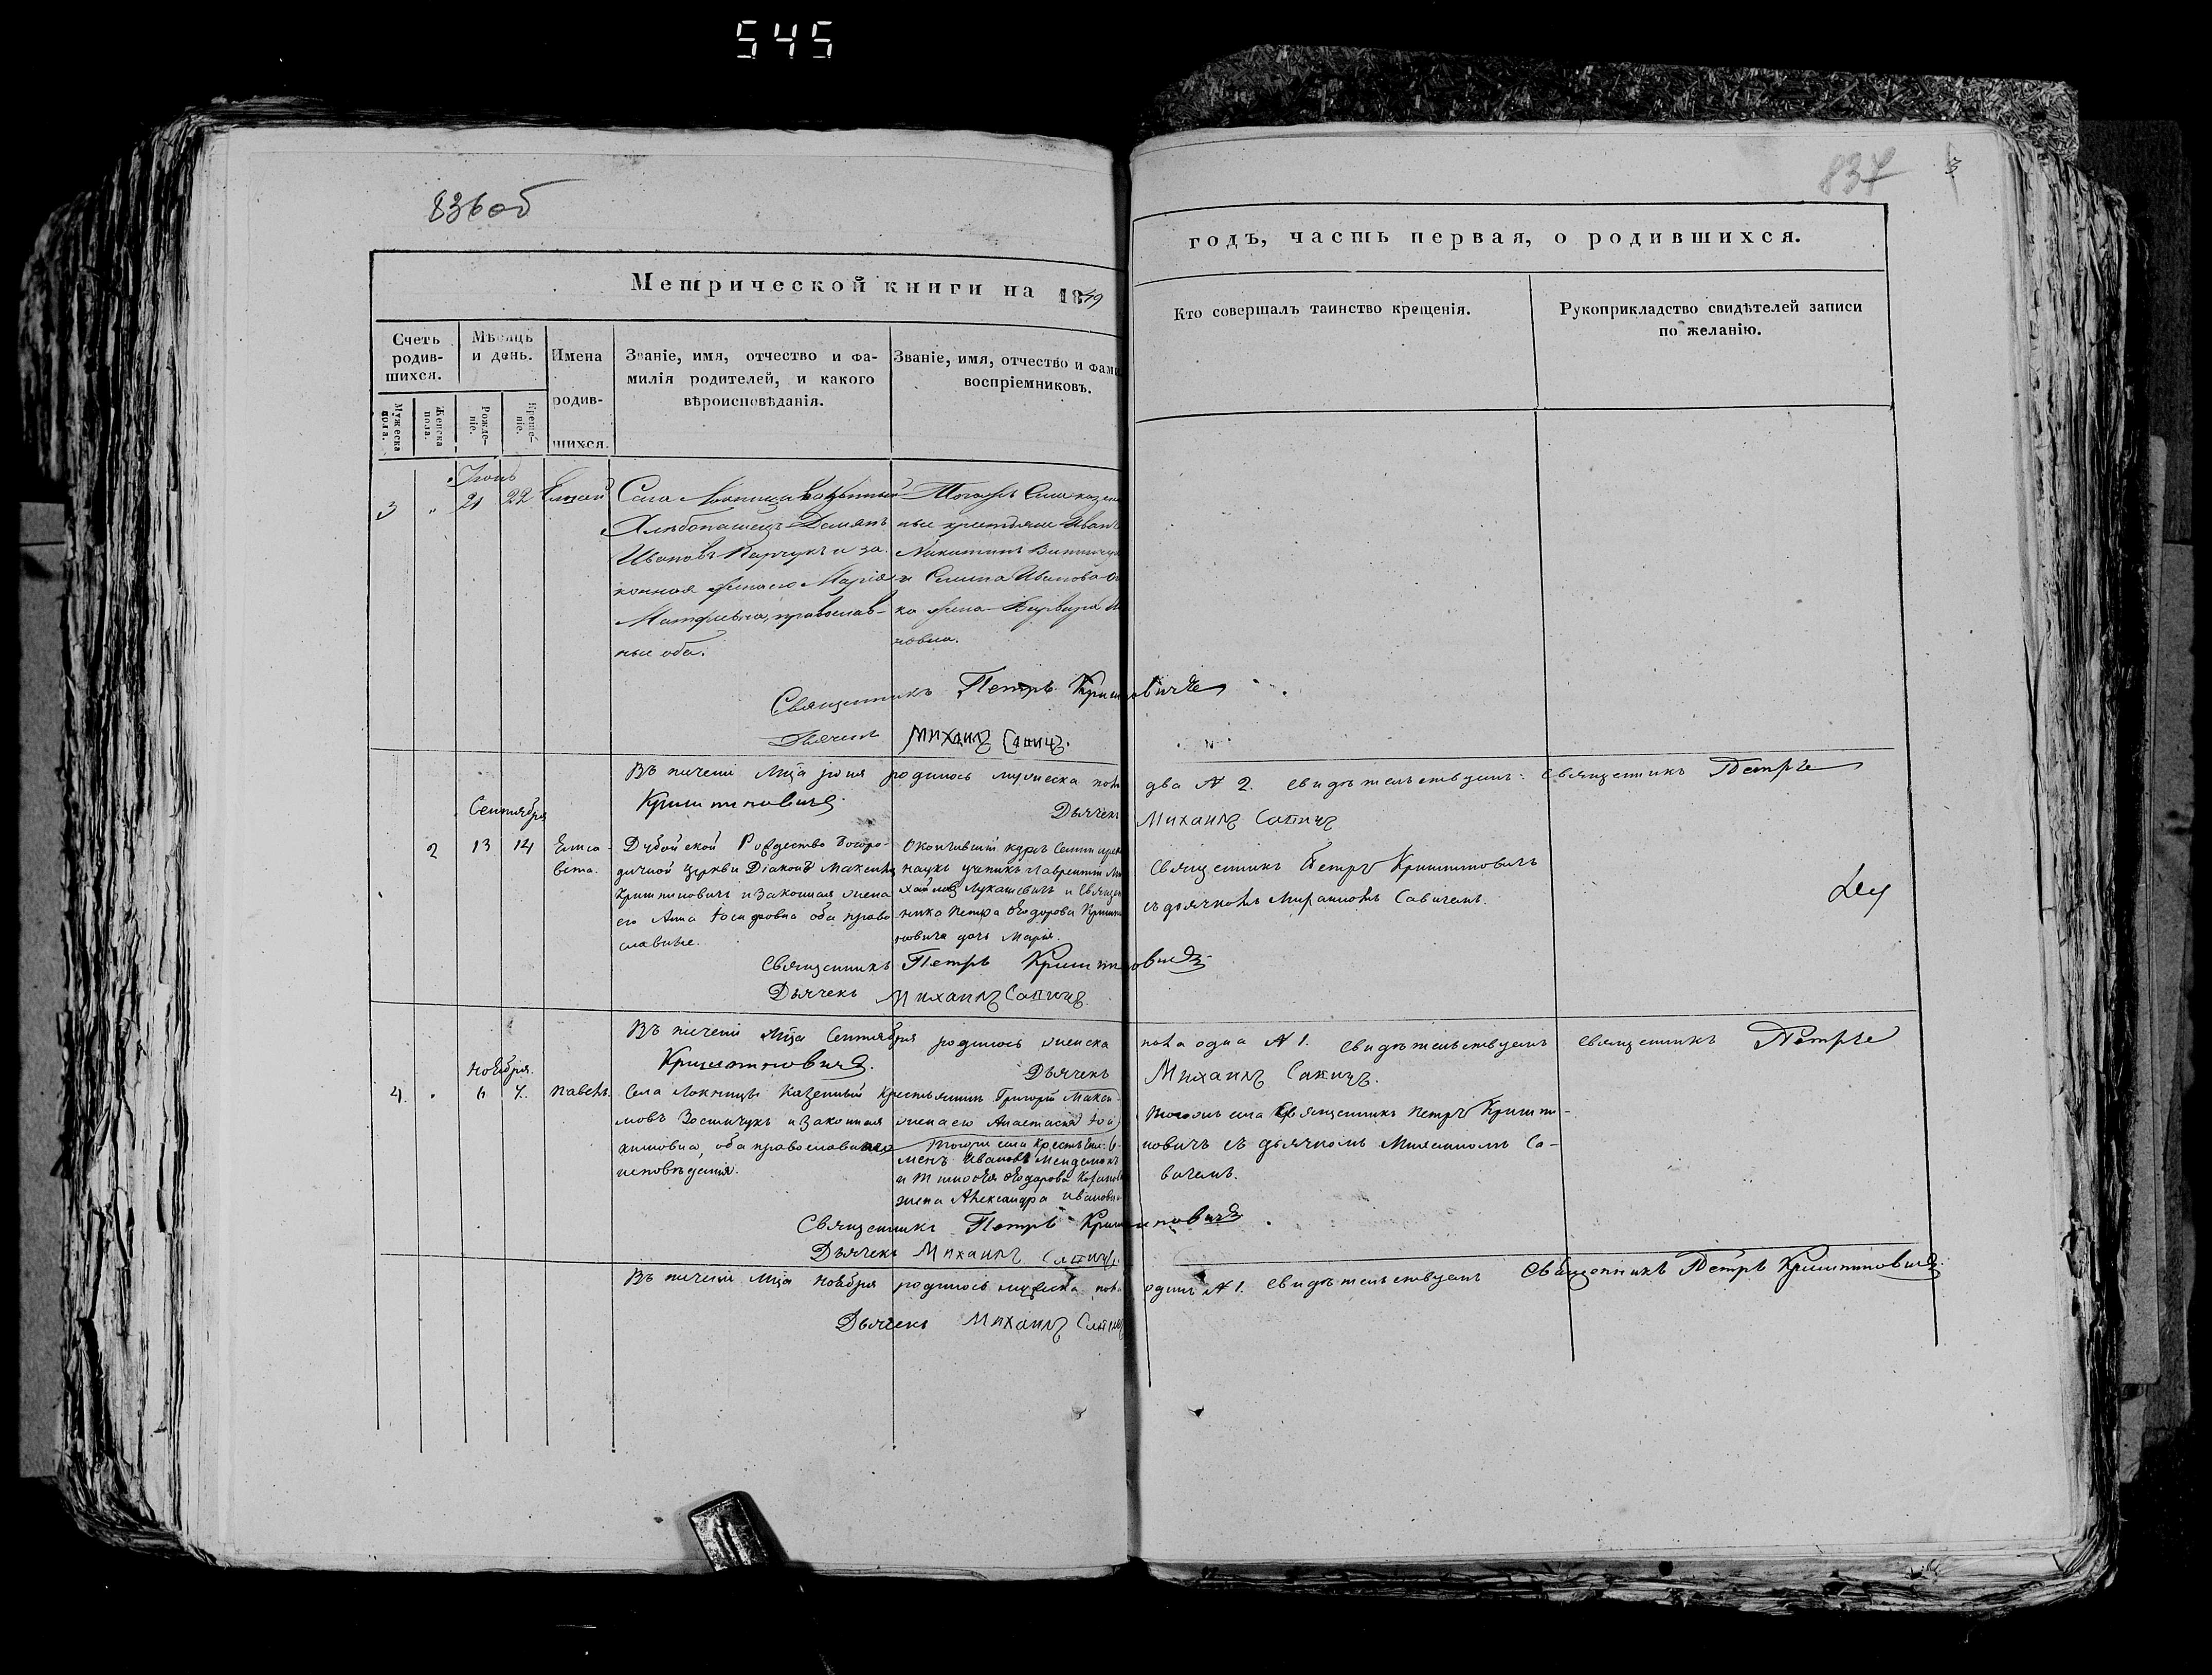 545
836об
837
3
Метрической книги на 1849
годъ, часть первая, о родившихся.
Счетъ родив-
шихся.
Мѣсяцъ
и день.
Имена
родив-
шихся.
Званіе, имя, отчество и фа-
милія родителей, и какого
вѣроисповѣданія.
Званіе, имя, отчество и фами
воспріемниковъ.
Кто совершалъ таинство крещенія.
Рукоприкладство свидѣтелей записи
по желанію.
Мужеска
пола.
Женска
пола.
Рожде-
ніе.
Креще-
ніе.
3 " 21 22
Хлѣбопашецъ Демянъ
Ивановъ и за-
конная жена его Марія
православ-
ные оба.
Тогожъ Села казен
ные крестьяне Иванъ
Никитинъ
и Ивановa
ка жена Варвара
новна.
Священникъ Петръ
Дьячекъ Михаилъ Сапичъ.
Въ теченіе Мца іюня родилось мужеска пола два № 2. свидѣтельствуемъ: священникъ Петръ
Криштиновичъ. Дьячекъ Михаилъ Сапичъ
Сентября
2 13 14 Елиса-
вета.
Дубойской Рождество Богоро-
дичной церкви Діаконъ Максимъ
Криштиновичъ и Законная жена
его Анна Іосифовна оба право
славные.
Окончившій курсъ Семинарск
наукъ ученикъ Лаврентій Ми
хайловъ Лукашевичъ и Священ
ника Петра Ѳеодорова Кришти
новича дочь Марія.
Священникъ Петръ Криштиновичъ
съ дьячкомъ Савичемъ.
Священникъ Петръ Криштиновичъ
Дьячекъ Михаилъ Сапичъ.
Въ теченіе Мца Сентября родилось женска пола одна № 1. свидѣтельствуемъ священникъ Петръ
Криштиновичъ. Дьячекъ Михаилъ Сапичъ.
Ноября.
4. 6 7. Павелъ.
Села Локницы Казенный Крестьянинъ Григорій Макси-
мовъ и Законная жена его Анастасія Іоа
кимовна, оба православнаго
исповѣданія.
Тогожъ села Крестьяне: Се
менъ Ивановъ
и Тимоѳея Ѳеодорова
жена Александра Ивановна
Тогожъ села Священникъ Петръ Кришти-
новичъ съ дьячкомъ Са-
вичемъ.
Священникъ Петръ Криштиновичъ
Дьячекъ Михаилъ Сапичъ.
Въ теченіе Мца Ноября родилось мужеска пола одинъ № 1. свидѣтельствуемъ Священникъ Петръ Криштиновичъ.
Дьячекъ Михаилъ Сапичъ